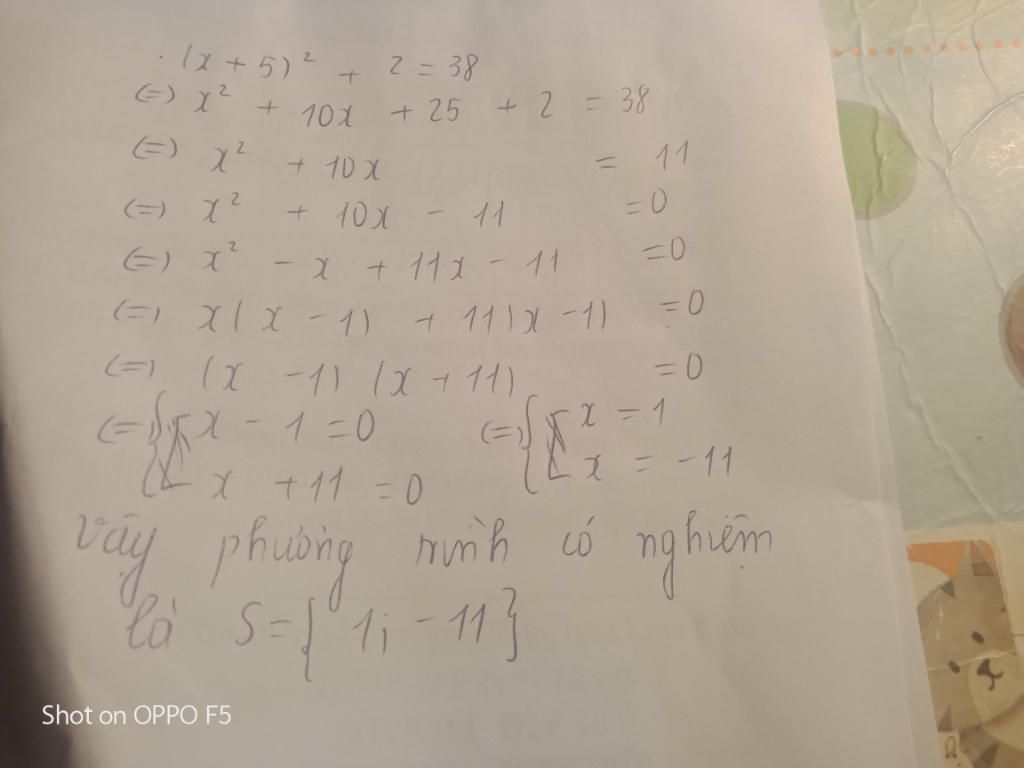 (x + 5)² + 2 = 38
(=) x² + 10x + 25 + 2 = 38
(=) x² + 10x = 11
(=) x² + 10x - 11 = 0
(=) x² - x + 11x - 11 = 0
(=) x(x - 1) + 11(x - 1) = 0
(=) (x - 1) (x + 11) = 0
(=) [ x - 1 = 0 (=) [ x = 1
x + 11 = 0 x = -11
Vậy phương trình có nghiệm
là S = { 1; - 11 }
Shot on OPPO F5